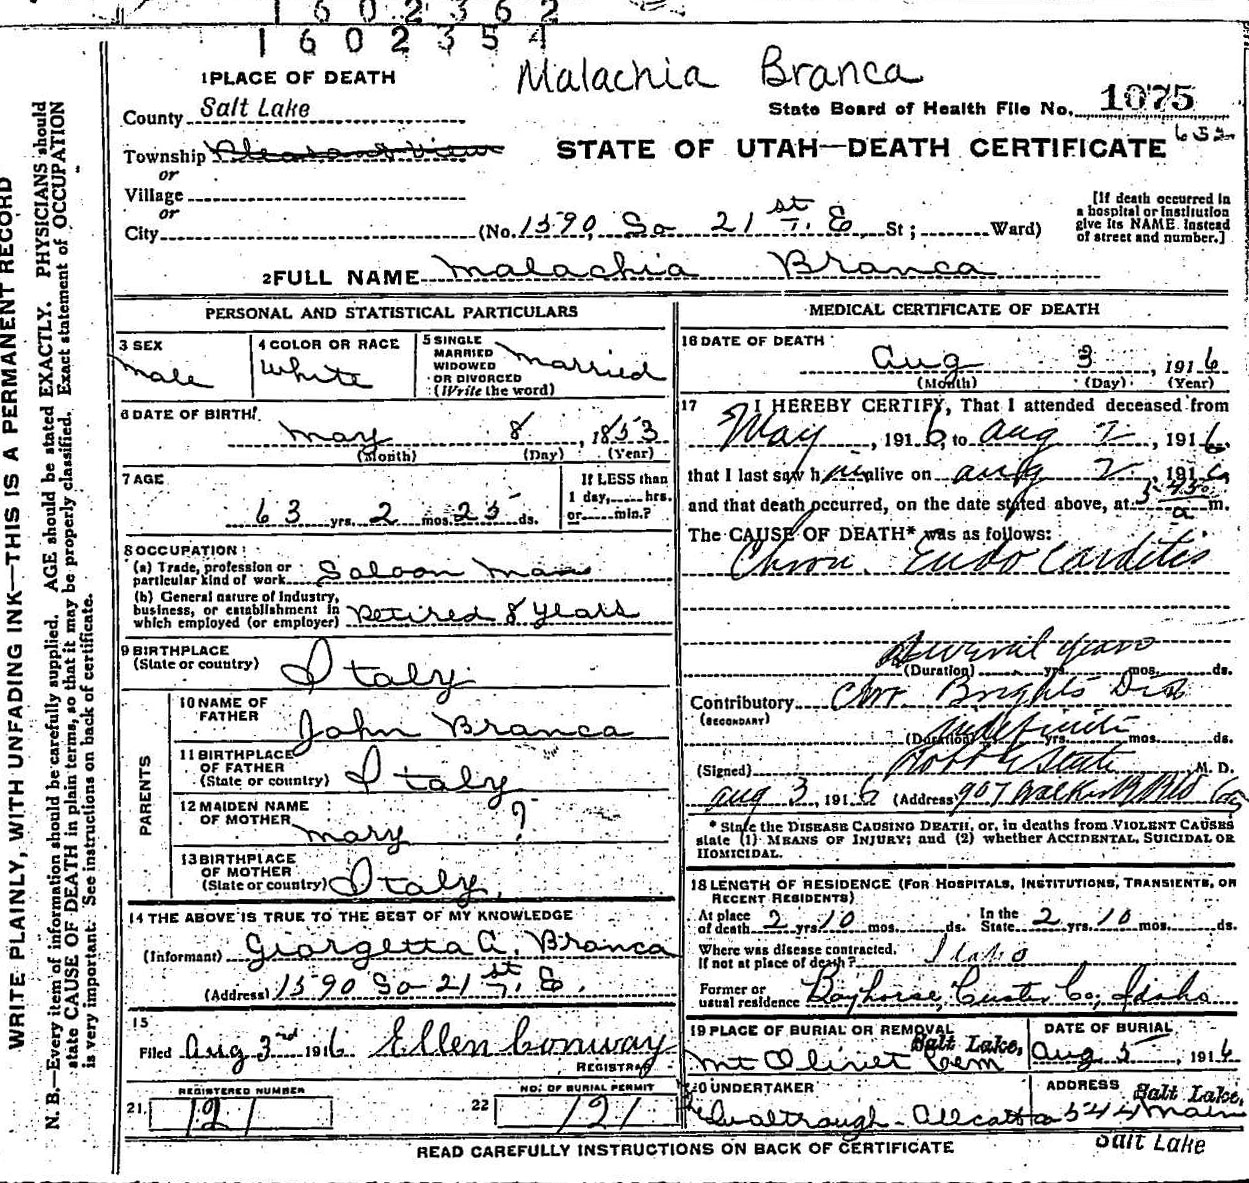 1 6 0 2 3 6 2
1 6 0 2 3 5 4
Malachia Branca
1 PLACE OF DEATH
County Salt Lake
State Board of Health File No. 1075
Township Pleasant View
STATE OF UTAH—DEATH CERTIFICATE 632
or
Village
or
City (No. 1590, So 21st E St; Ward)
[If death occurred in a hospital or institution give its NAME instead of street and number.]
2 FULL NAME Malachia Branca
PERSONAL AND STATISTICAL PARTICULARS
3 SEX
Male
4 COLOR OR RACE
White
5 SINGLE
MARRIED
WIDOWED
OR DIVORCED
(Write the word)
Married
6 DATE OF BIRTH
May 8, 1853
(Month) (Day) (Year)
7 AGE
63 yrs. 2 mos. 25 ds.
If LESS than
1 day, hrs.
or min.?
8 OCCUPATION
(a) Trade, profession or
particular kind of work Saloon Man
(b) General nature of industry,
business, or establishment in
which employed (or employer) Retired 8 years
9 BIRTHPLACE
(State or country) Italy
PARENTS
10 NAME OF
FATHER John Branca
11 BIRTHPLACE
OF FATHER
(State or country) Italy
12 MAIDEN NAME
OF MOTHER Mary ?
13 BIRTHPLACE
OF MOTHER
(State or country) Italy.
14 THE ABOVE IS TRUE TO THE BEST OF MY KNOWLEDGE
(Informant) Giorgetta A. Branca
(Address) 1590 So 21st E.
15
Filed Aug 3rd 1916 Ellen Conway
REGISTRAR
REGISTERED NUMBER
21. 121
NO. OF BURIAL PERMIT
22 121
MEDICAL CERTIFICATE OF DEATH
16 DATE OF DEATH
Aug 3, 1916
(Month) (Day) (Year)
17 I HEREBY CERTIFY, That I attended deceased from
May, 1916, to Aug 2, 1916,
that I last saw him alive on Aug 2, 1916,
and that death occurred, on the date stated above, at a m.
The CAUSE OF DEATH* was as follows:
Chron. Endo Carditis
Several years
(Duration) yrs. mos. ds.
Contributory Chr. Brights Dis
(SECONDARY)
Indefinite
(Duration) yrs. mos. ds.
(Signed) M. D.
Aug 3, 1916 (Address) 907 Walker
* State the DISEASE CAUSING DEATH, or, in deaths from VIOLENT CAUSES
state (1) MEANS OF INJURY; and (2) whether ACCIDENTAL, SUICIDAL OR
HOMICIDAL.
18 LENGTH OF RESIDENCE (FOR HOSPITALS, INSTITUTIONS, TRANSIENTS, OR
RECENT RESIDENTS)
At place of death 2 yrs. 10 mos. ds. In the State 2 yrs. 10 mos. ds.
Where was disease contracted,
If not at place of death? Idaho
Former or
usual residence Bayhorse, Custer Co, Idaho
19 PLACE OF BURIAL OR REMOVAL
Salt Lake,
Mt Olivet Cem
DATE OF BURIAL
Aug 5, 1916
20 UNDERTAKER
ADDRESS Salt Lake,
544 Main
Salt Lake
READ CAREFULLY INSTRUCTIONS ON BACK OF CERTIFICATE
WRITE PLAINLY, WITH UNFADING INK—THIS IS A PERMANENT RECORD
N. B.—Every item of information should be carefully supplied. AGE should be stated EXACTLY. PHYSICIANS should
state CAUSE OF DEATH in plain terms, so that it may be properly classified. Exact statement of OCCUPATION
is very important. See instructions on back of certificate.